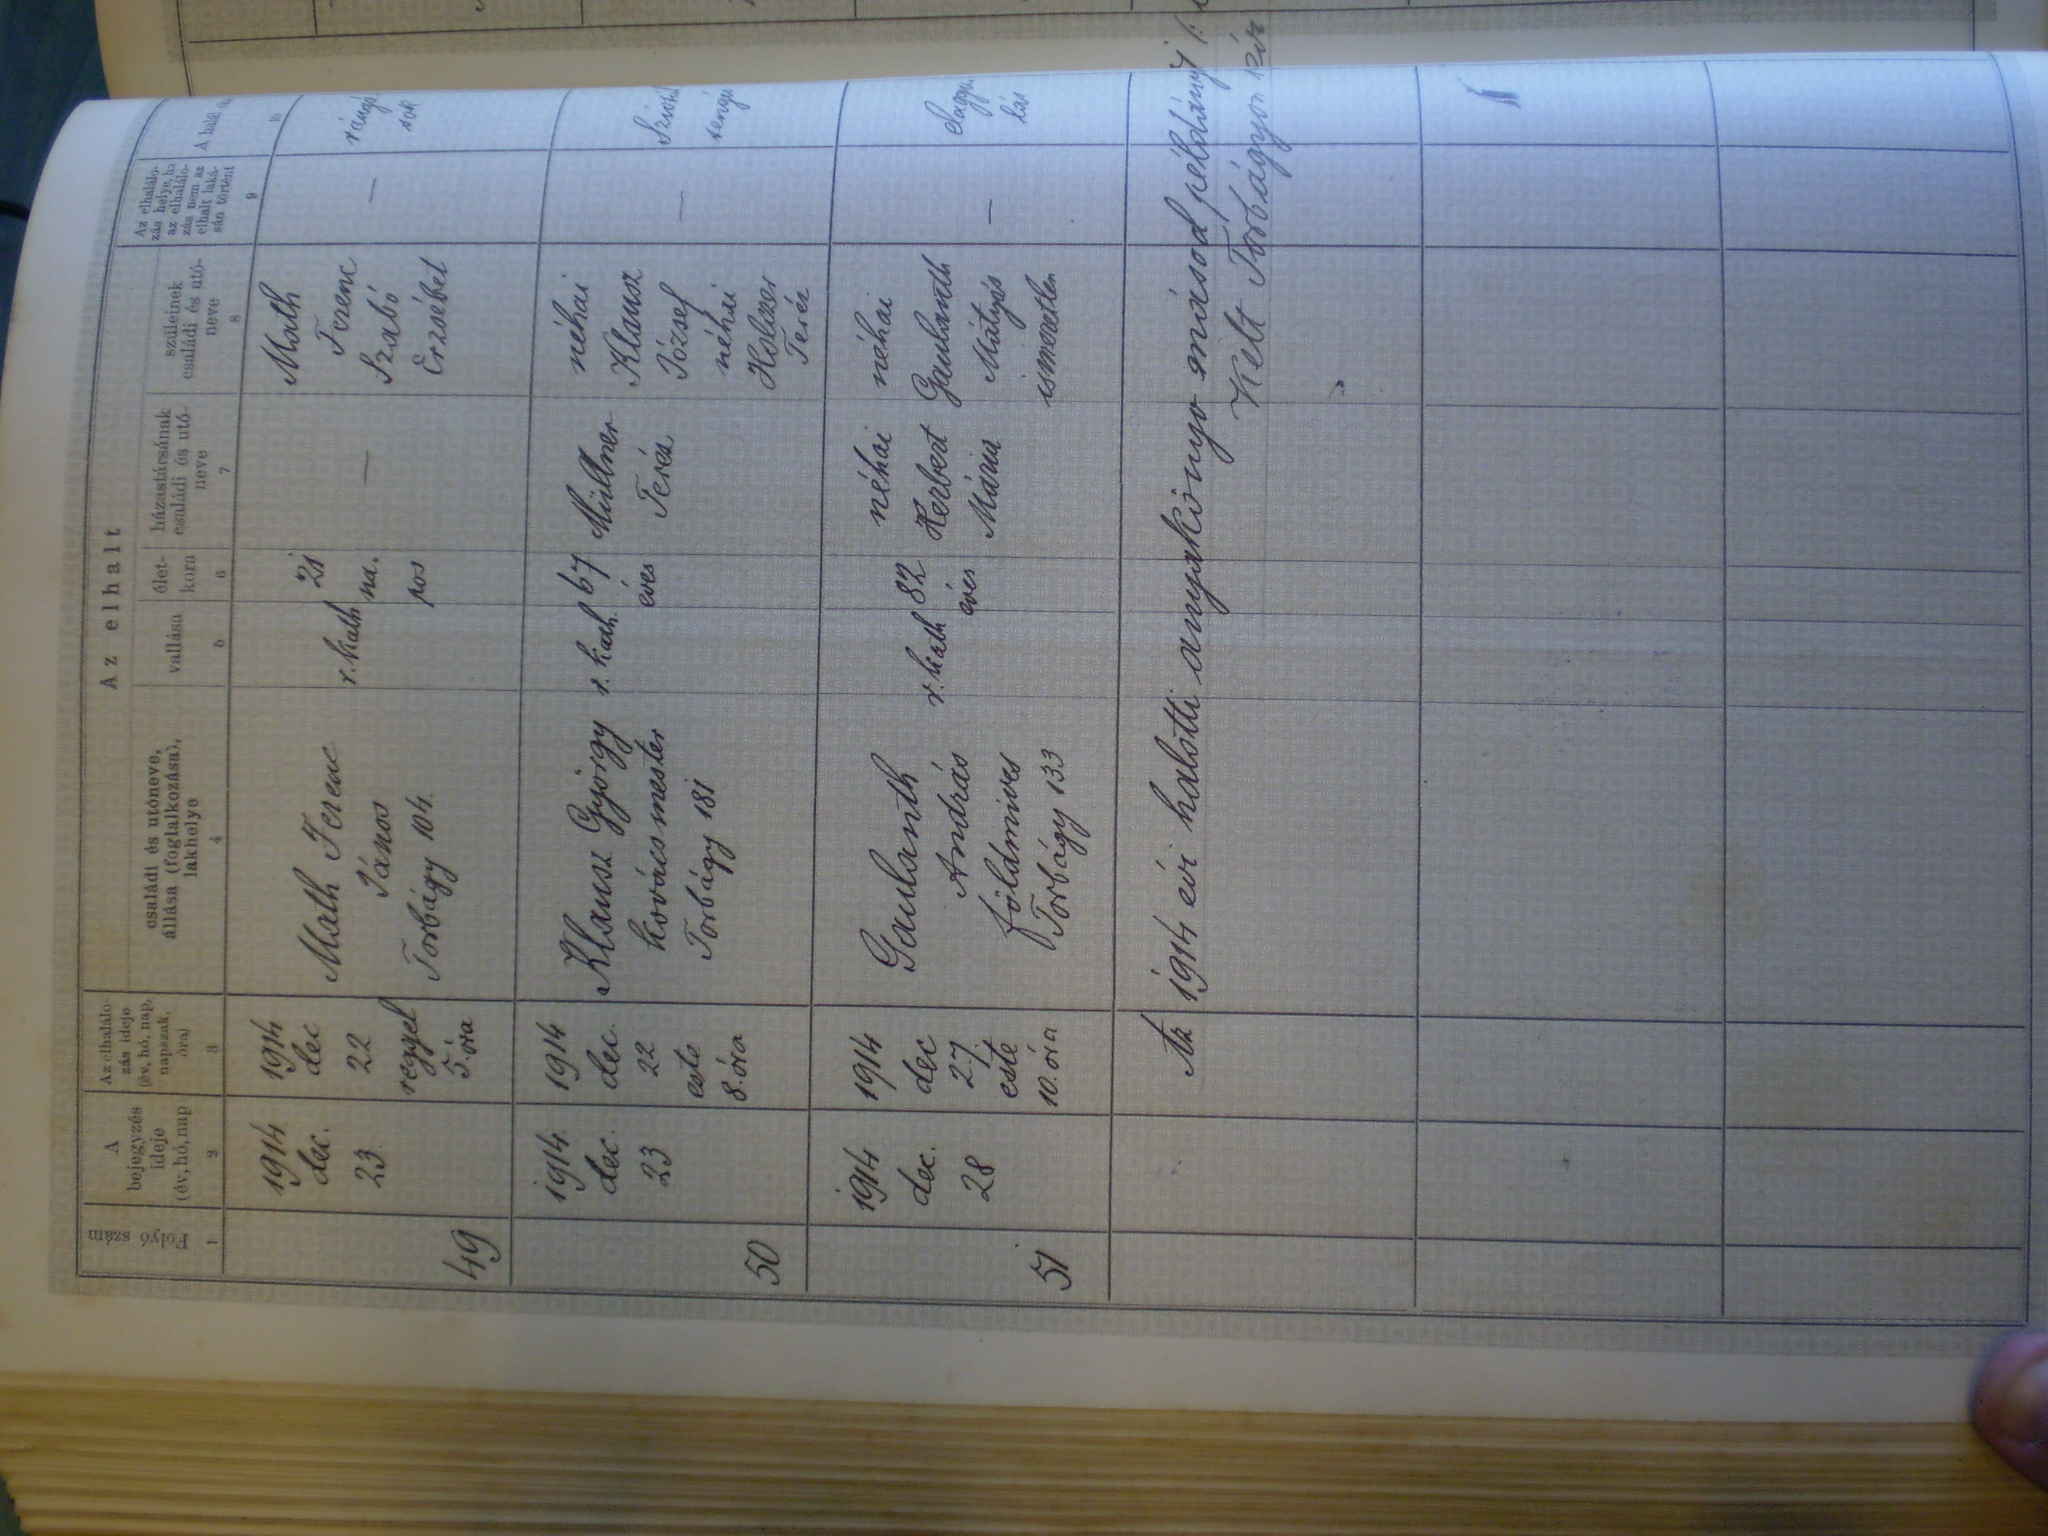 Az elhalt
Folyó szám
A bejegyzés ideje (év, hó, nap
Az elhalálo-
zás ideje
(év, hó, nap,
napszak,
óra)
családi és utóneve,
állása (foglalkozása),
lakhelye
vallása
élet-
kora
házastársának
családi és utó-
neve
szüleinek
családi és utó-
neve
Az elhalálo-
zás helye, ha
az elhalálo-
zás nem az
elhalt laká-
sán történt
A halál
1 2 3 4 5 6 7 8 9 10
49
1914
dec.
23
1914
dec
22
reggel
5. óra
Math Ferenc
János
Torbágy 104.
r. kath
21
na.
pos
—
Math
Ferenc
Szabó
Erzsébet
—
50
1914
dec.
23
1914
dec.
22
este
8. óra
Klausz György
kovácsmester
Torbágy 181
r. kath.
67
éves
Müllner
Teréz
néhai
Klausz
József
néhai
Holczer
Teréz
—
51
1914
dec.
28
1914
dec
27
este
10. óra
András
földmives
Torbágy 133
r. kath
82
éves
néhai
Herbert
Mária
néhai
Mátyás
ismeretlen
—
Az 1914 évi halotti anyakönyv másod példányá
Kelt Torbágyon